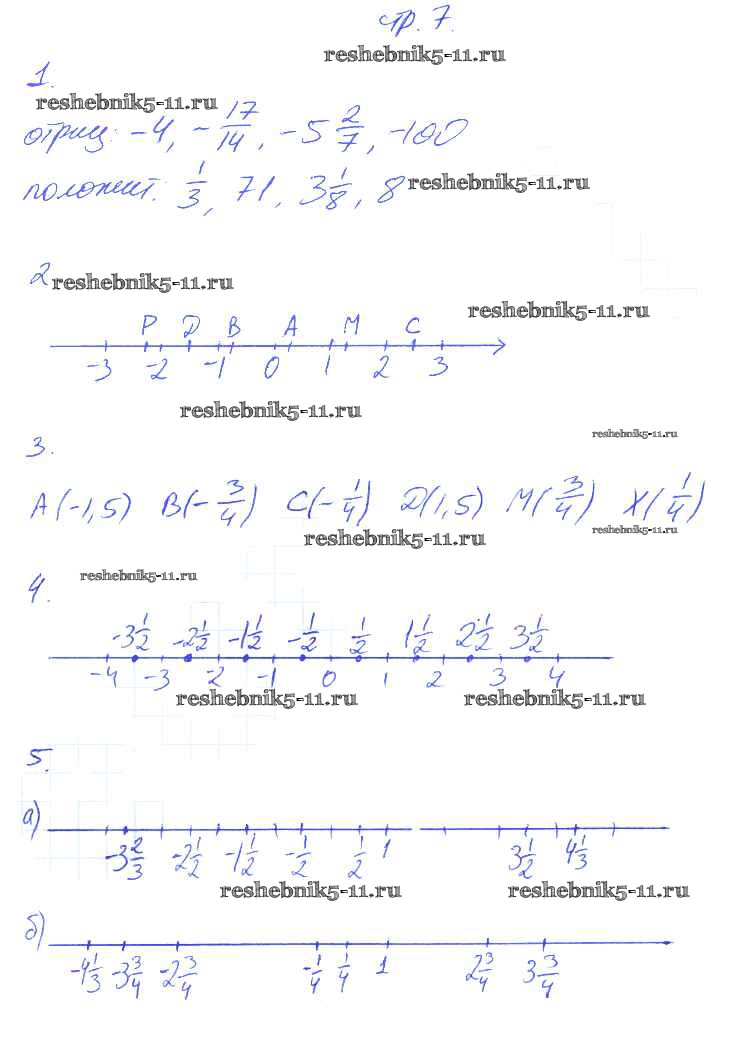 стр. 7.
reshebnik5-11.ru
1.
reshebnik5-11.ru
отриц: -4, -17/14, -5 2/7, -100
положит: 1/3, 71, 3 1/8, 8 reshebnik5-11.ru
2 reshebnik5-11.ru
reshebnik5-11.ru
P D B A M C
-3 -2 -1 0 1 2 3
reshebnik5-11.ru
reshebnik5-11.ru
3.
A(-1,5) B(-3/4) C(-1/4) D(1,5) M(3/4) X(1/4)
reshebnik5-11.ru reshebnik5-11.ru
reshebnik5-11.ru
4.
-3 1/2 -2 1/2 -1 1/2 -1/2 1/2 1 1/2 2 1/2 3 1/2
-4 -3 -2 -1 0 1 2 3 4
reshebnik5-11.ru reshebnik5-11.ru
5.
а)
-3 2/3 -2 1/2 -1 1/2 -1/2 1/2 1 3 1/2 4 1/3
reshebnik5-11.ru reshebnik5-11.ru
б)
-4 1/3 -3 3/4 -2 3/4 -1/4 1/4 1 2 3/4 3 3/4